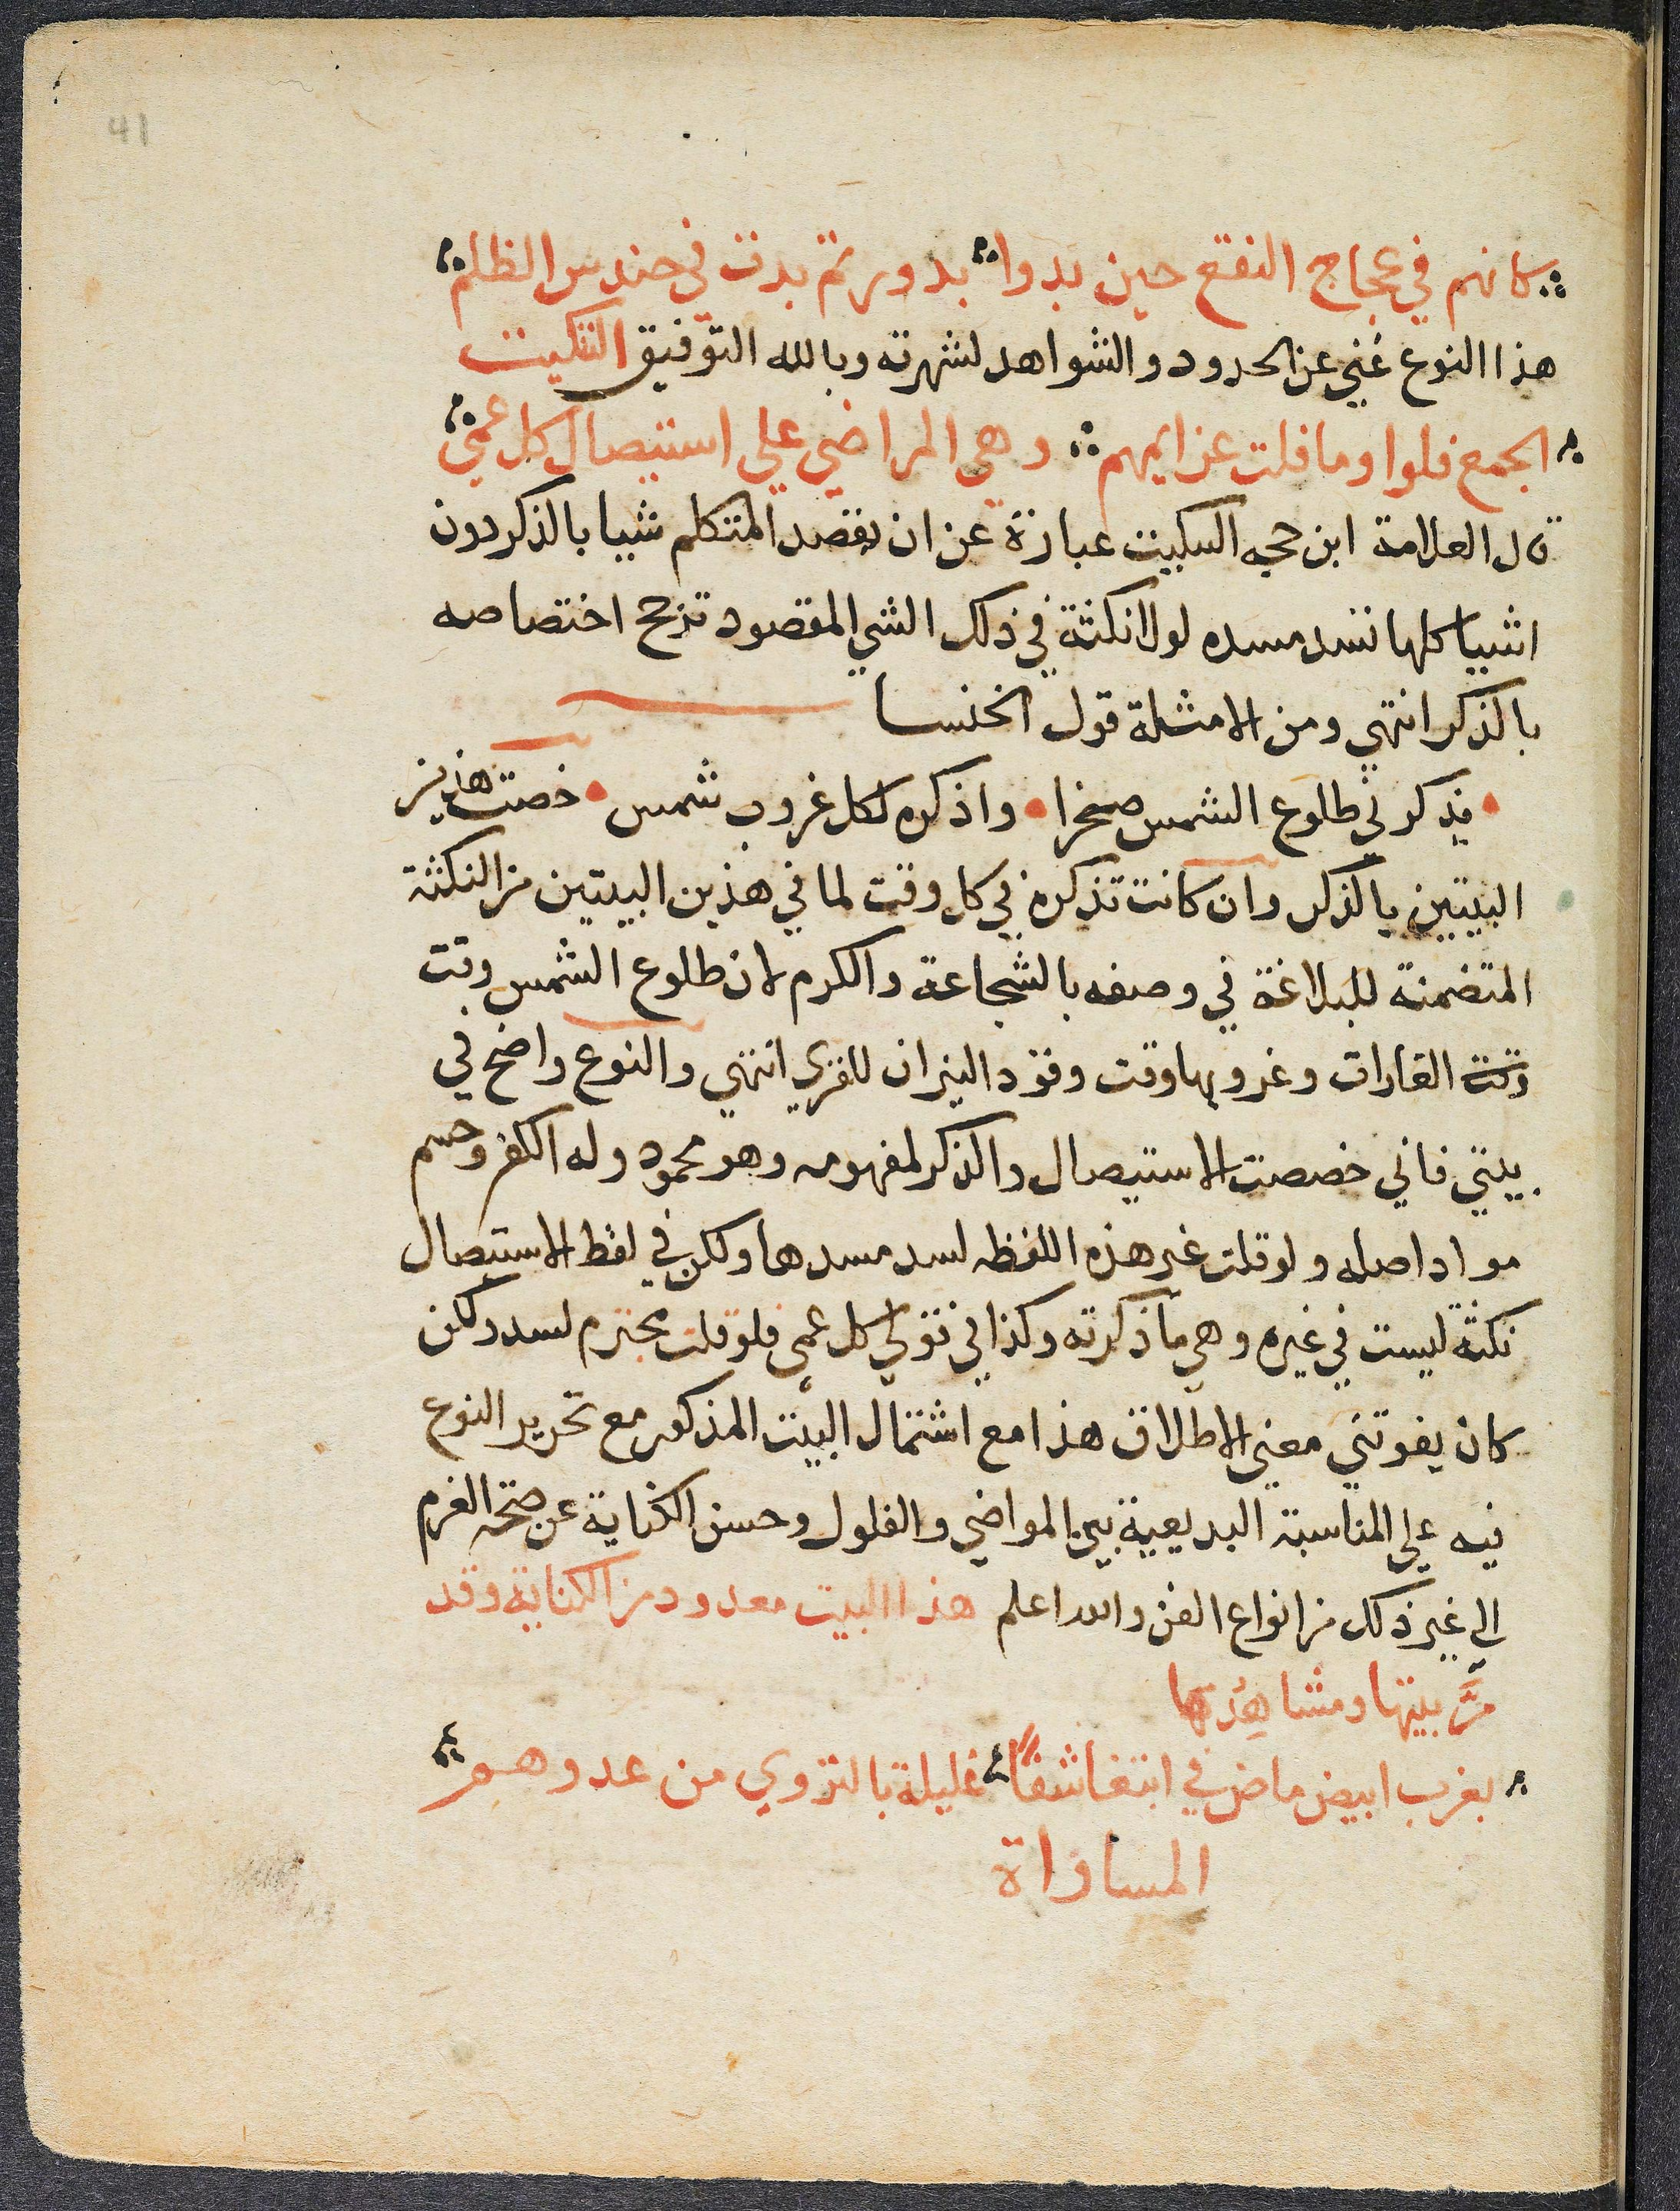 41
كانهم في عجاج النقع حين بدوا بدور تم بدت في حندس الظلم
هذا النوع غني عن الحدود والشواهد لشهرته وبالله التوفيق التنكيت
الجمع فلوا وما فلت عزايمهم وهي المراضي علي استيصال كل عمي
قال العلامة ابن حجه السكيت عبارة عن ان يقصد المتكلم شيا بالذكر دون
اشيا كلها تسد مسده لولا نكثة في ذلك الشي المقصود ترجح اختصاصه
بالذكر انتهي ومن الامثلة قول الخنسا
يذكرني طلوع الشمس صخرا واذكره لكل غروب شمس خصت هذين
البيتين بالذكر وان كانت تذكره في كل وقت لما في هذين البيتين من النكثة
المتضمنة للبلاغة في وصفه بالشجاعة والكرم لان طلوع الشمس وقت
وقت الغارات وغروبها وقت وقود النيران للقري انتهي والنوع واضح في
بيتي فاني خصصت الاستيصال والذكر لمفهومه وهو محمود وله الكفر وحسم
مواد اصله ولو قلت غير هذه اللفظه لسد مسدها ولكن في لفظ الاستيصال
نكثة ليست في غيره وهي ما ذكرته وكذا في قولي كل عمي فلو قلت مجترم لسد ولكن
كان يفوتني معني الاطلاق هذا مع اشتمال البيت المذكور مع تحرير النوع
فيه علي المناسبة البديعية بين المواضي والفلول وحسن الكناية عن صحة العزم
الي غير ذلك من انواع الفن والله اعلم هذا البيت معدود من الكناية وقد
مرَّ بيتها ومشاهدها
بغرب ابيض ماض في ابتغا شفًا غليلة بالتروي من عدوهم
المساواة